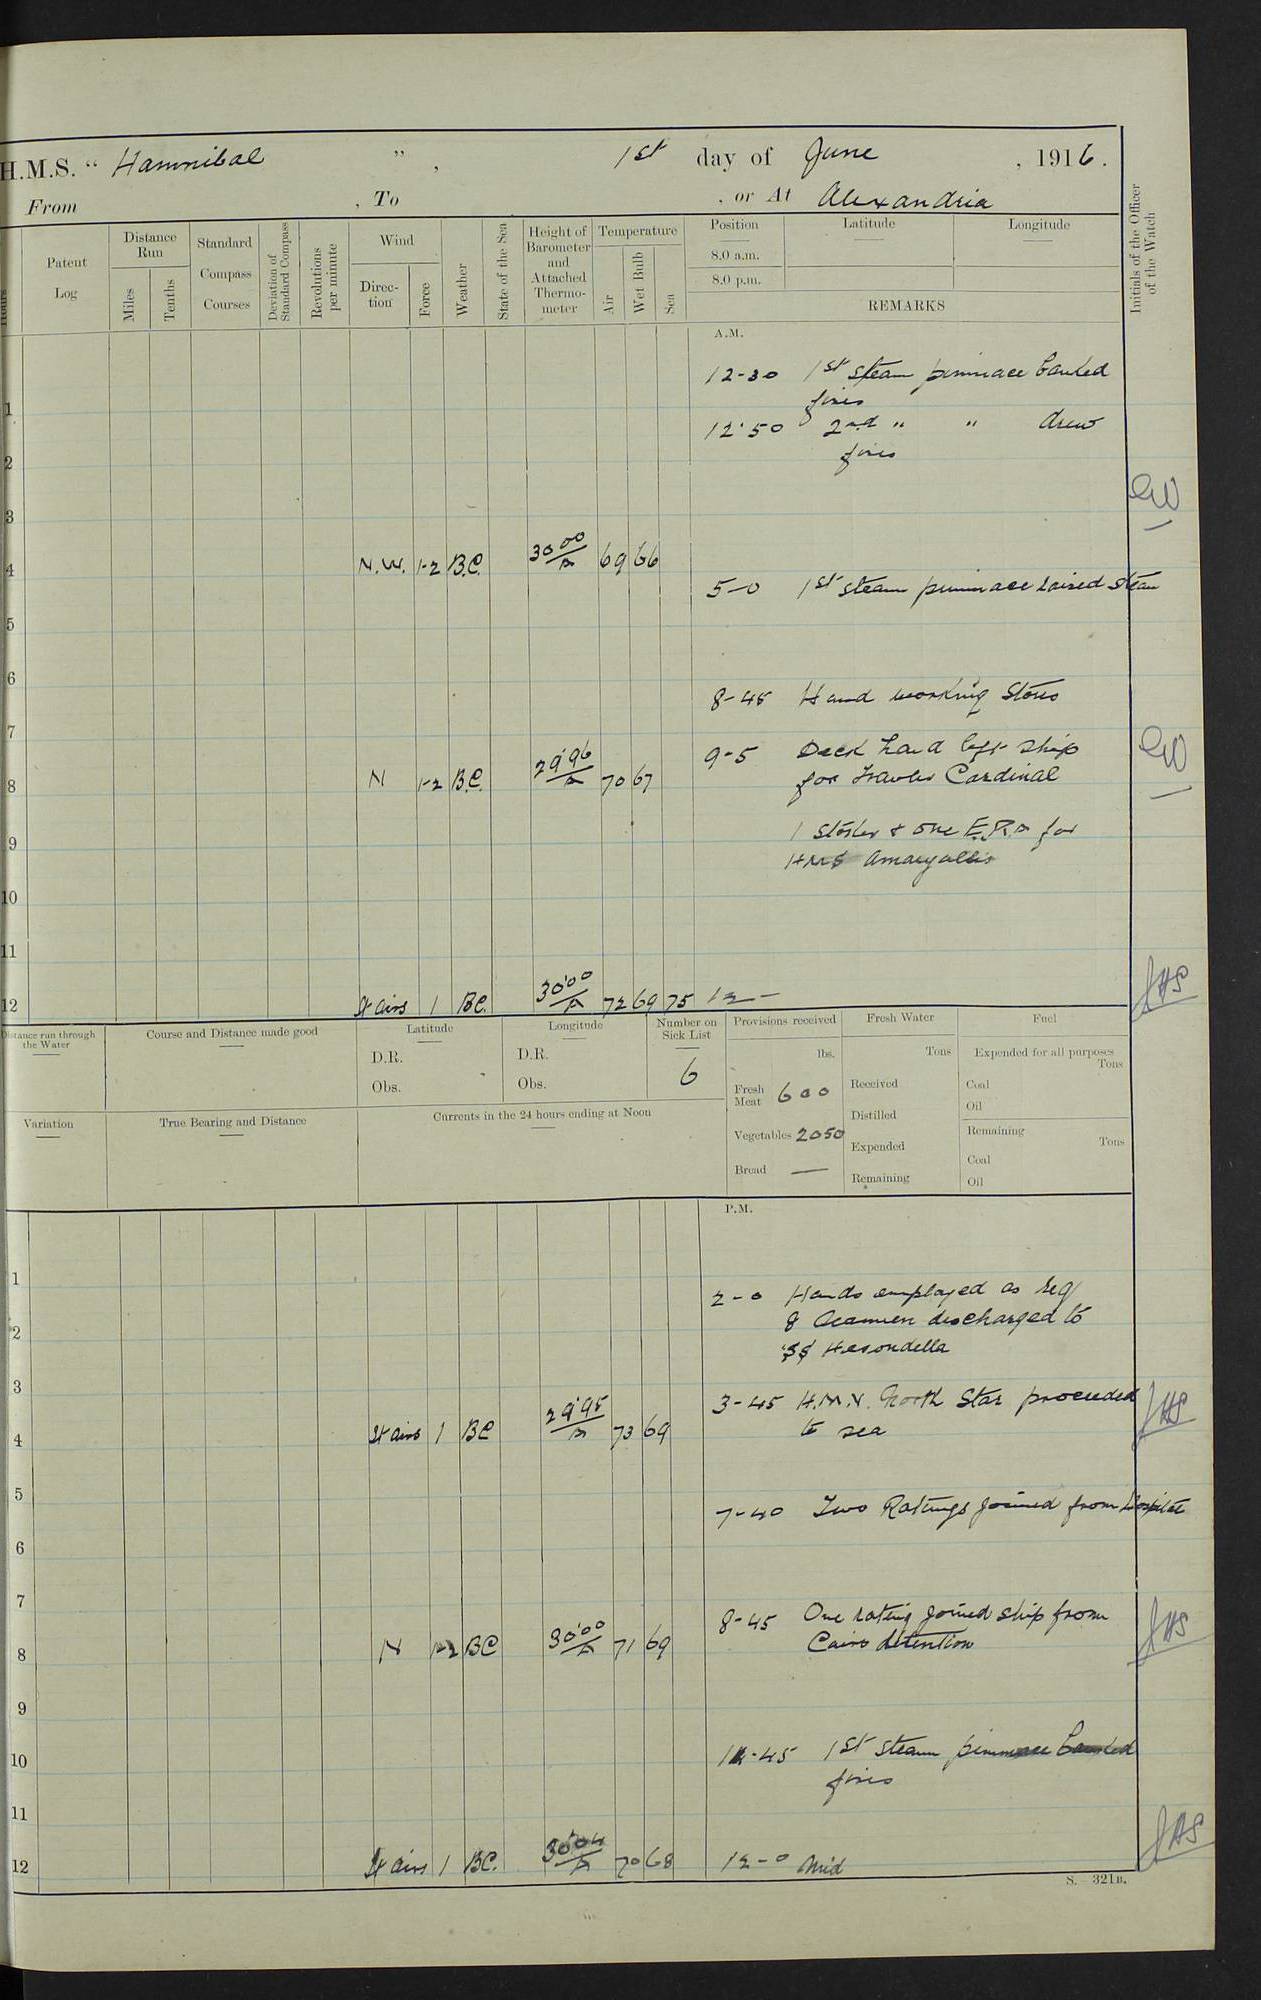 H.M.S. " Hannibal ", 1st day of June , 1916.
From , To , or At Alexandria
Hours
Patent Log
Distance Run
Miles
Tenths
Standard Compass Courses
Deviation of Standard Compass
Revolutions per minute
Wind
Direction
Force
Weather
State of the Sea
Height of Barometer and Attached Thermometer
Temperature
Air
Wet Bulb
Sea
Position
8.0 a.m.
8.0 p.m.
Latitude
Longitude
REMARKS
Initials of the Officer of the Watch
A.M.
12-30 1st steam pinnace banked
fires
1
12.50 2nd " " drew
fires
2
3
4 N.W. 1-2 B.C. 30.00 69 66
5-0 1st steam pinnace raised steam
5
6
8-45 Hand working stores
7
9-5 Deck hand left ship
for Trawler Cardinal
8 N 1-2 B.C. 29.96 70 67
1 Stoker & one E.R.A for
9
HMS Amaryallis
10
11
12 Lt airs 1 BC. 30.00 72 69 75 12-
JHS
Distance run through the Water
Course and Distance made good
Latitude
D.R.
Obs.
Longitude
D.R.
Obs.
Number on Sick List
6
Provisions received
lbs.
Fresh Meat 600
Vegetables 2050
Bread —
Fresh Water
Tons
Received
Distilled
Expended
Remaining
Fuel
Expended for all purposes
Tons
Coal
Oil
Remaining
Tons
Coal
Oil
Variation
True Bearing and Distance
Currents in the 24 hours ending at Noon
P.M.
1
2-0 Hands employed as req
8 Seamen discharged to
2
SS
3
3-45 North Star proceeded
to sea
JHS
4 Lt airs 1 BC 29.95 73 69
5
7-40 Two Ratings joined from Hospital
6
7
8-45 One rating joined ship from
Cairo detention
JHS
8 N 1-2 BC 30.00 71 69
9
10
-45 1st steam pinnace banked
fires
11
JHS
12 Lt airs 1 BC. 30.04 70 68 12-0 Mid
S. 321B.